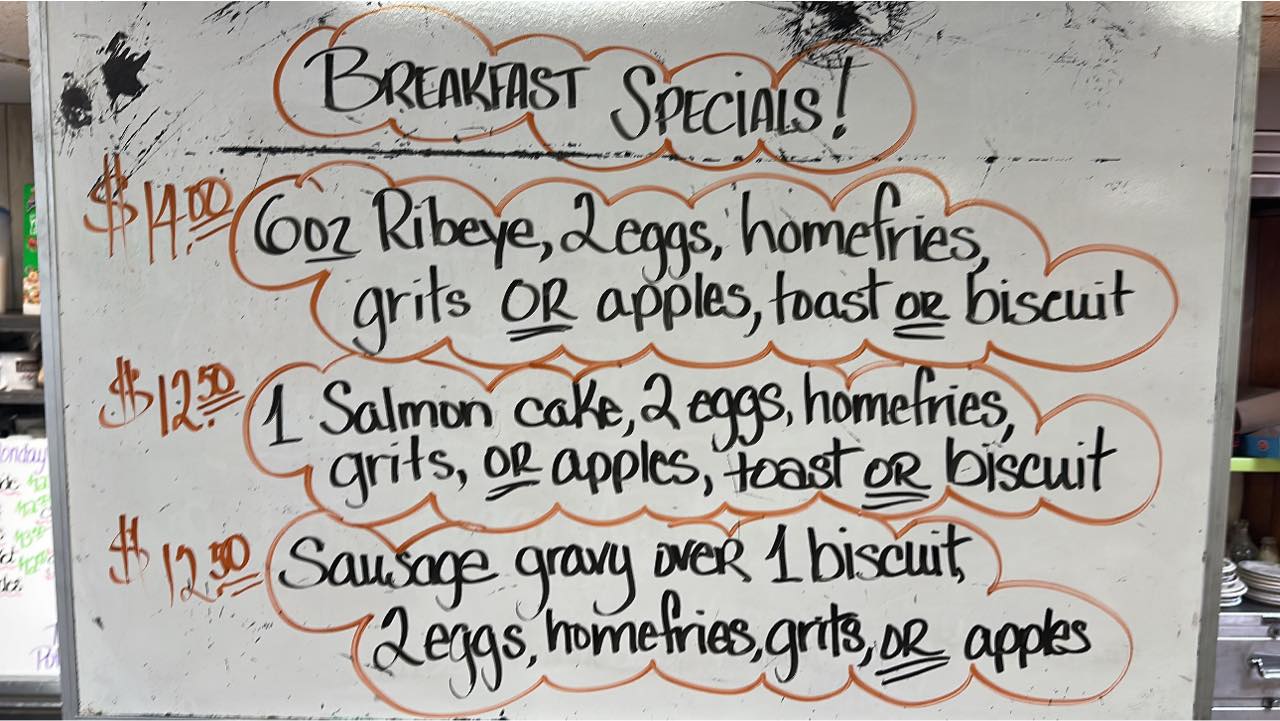 BREAKFAST SPECIALS!
$14.00 6oz Ribeye, 2 eggs, homefries,
grits OR apples, toast OR biscuit
$12.50 1 Salmon cake, 2 eggs, homefries,
grits, OR apples, toast OR biscuit
$12.50 Sausage gravy over 1 biscuit,
2 eggs, homefries, grits, OR apples